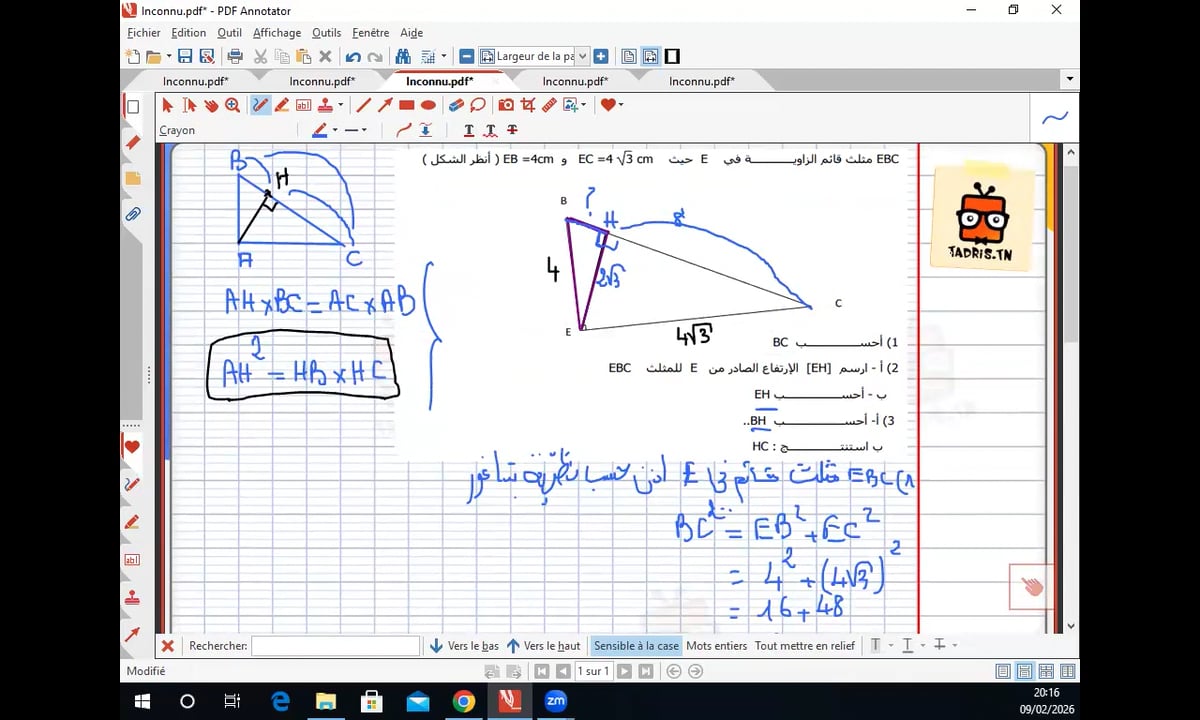 Inconnu.pdf* - PDF Annotator
Fichier Edition Outil Affichage Outils Fenêtre Aide
Largeur de la pa
Inconnu.pdf* Inconnu.pdf* Inconnu.pdf* Inconnu.pdf* Inconnu.pdf*
Crayon
EBC مثلث قائم الزاويـــــــــة في E حيث EC =4 √3 cm و EB =4cm ( أنظر الشكل )
B
H
A
C
AH × BC = AC × AB
AH² = HB × HC
B
?
H
8
4
2√3
E
4√3
C
TADRIS.TN
1) أحســـــــــــب BC
2) أ - ارسم [EH] الإرتفاع الصادر من E للمثلث EBC
ب - أحســـــــــــب EH
3) أ- أحســـــــــــب BH..
ب استنتـــــــــــج : HC
1) EBC مثلث قائم في E اذن حسب نظرية بيتاغور
BC² = EB² + EC²
= 4² + (4√3)²
= 16 + 48
Rechercher: Vers le bas Vers le haut Sensible à la case Mots entiers Tout mettre en relief
Modifié
1 sur 1
zm
20:16
09/02/2026